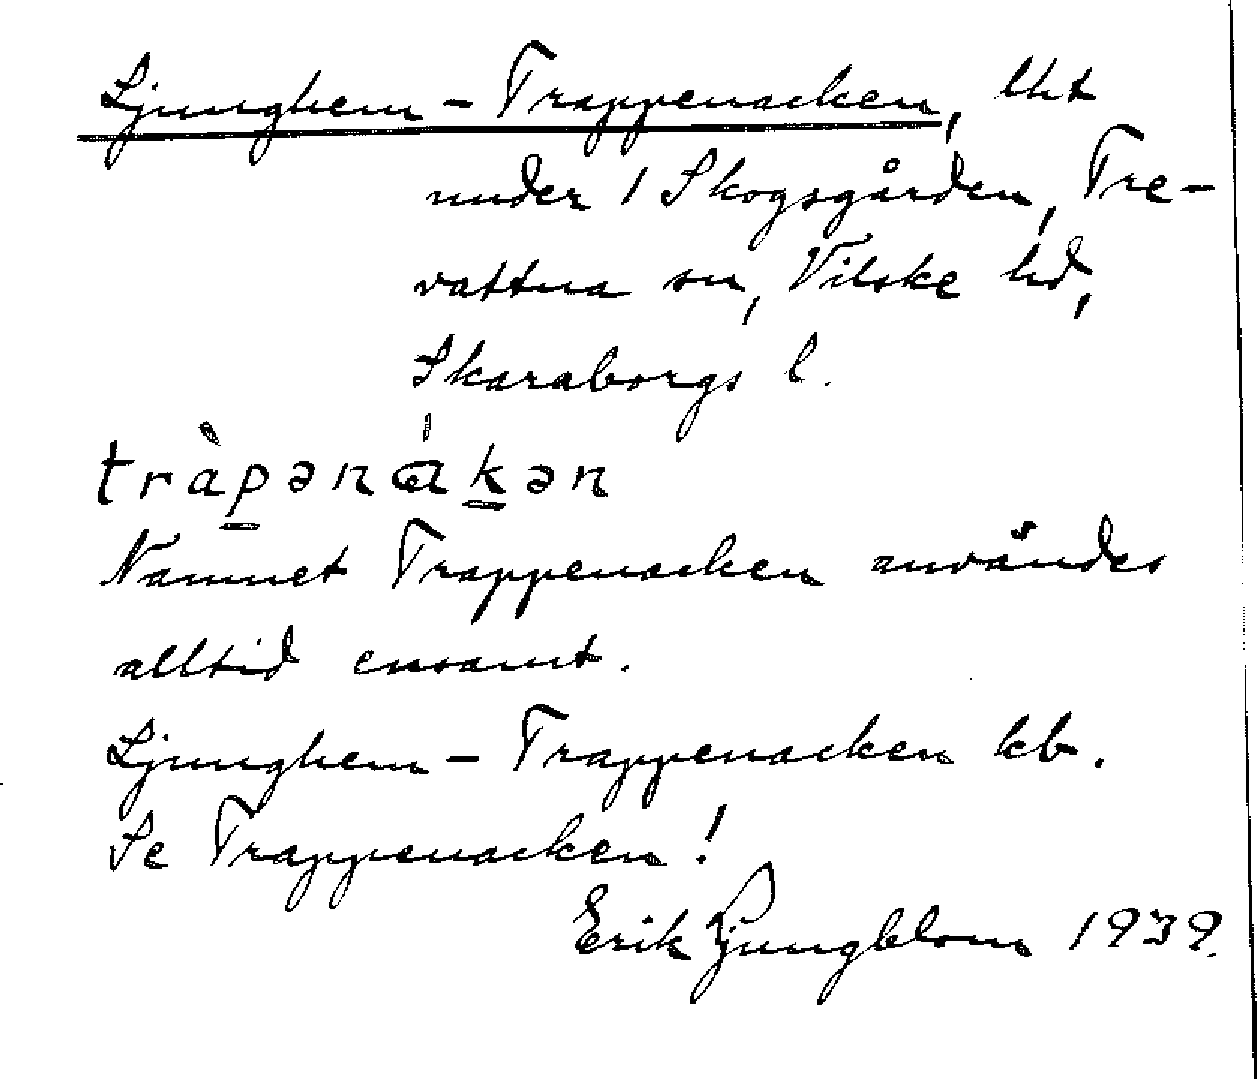 Ljunghem - Trappenacken, lht
under 1 Skogsgården, Tre-
vattna sn, Vilske hd,
Skaraborgs l.
tràpənákən
Namnet Trappenacken användes
alltid ensamt.
Ljunghem - Trappenacken kb.
Se Trappenacken!
Erik Ljungblom 1939.